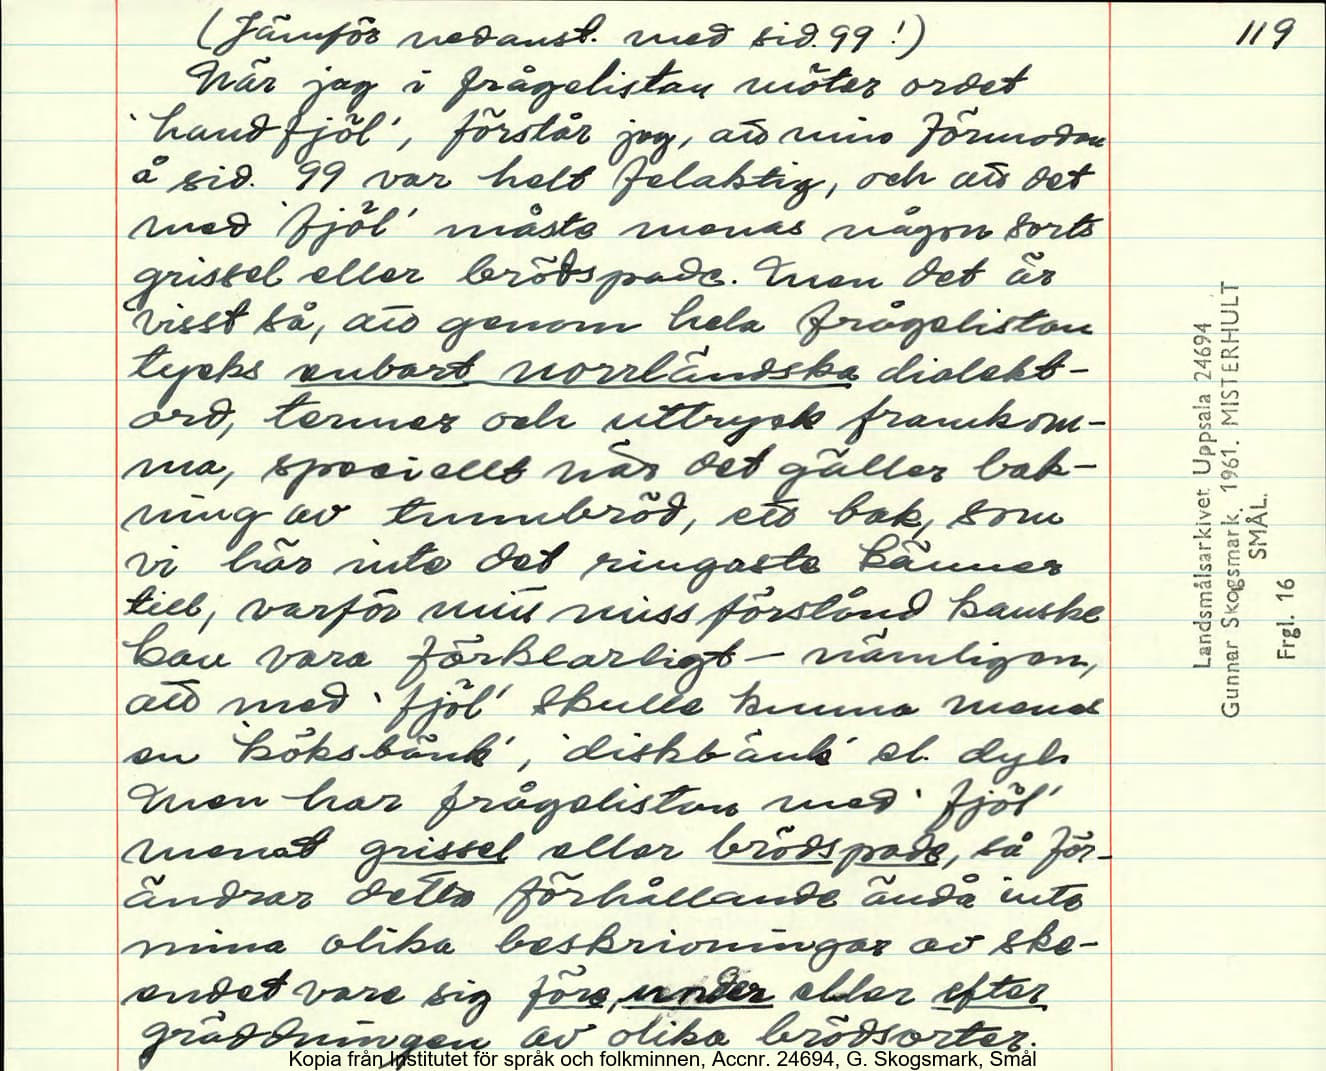 (Jämför nedanst. med sid. 99!)
119
När jag i frågelistan möter ordet
'handfjöl', förstår jag, att min förmodan
å sid. 99 var helt felaktig, och att det
med 'fjöl' måste menas någon sorts
grissel eller brödspade. Men det är
visst så, att genom hela frågelistan
tycks enbart norrländska dialekt-
ord, termer och uttryck framkom-
ma, speciellt när det gäller bak-
ning av tunnbröd, ett bak, som
vi här inte det ringaste känner
till, varför mitt missförstånd kanske
kan vara förklarligt – nämligen,
att med 'fjöl' skulle kunna menas
en 'köksbänk', 'diskbänk' el. dyl.
Men har frågelistan med 'fjöl'
menat grissel eller brödspade, så för-
ändrar detta förhållande ändå inte
mina olika beskrivningar av ske-
endet vare sig före, under eller efter
gräddningen av olika brödsorter.
Landsmålsarkivet Uppsala 24694
Gunnar Skogsmark. 1961. MISTERHULT
SMÅL.
Frgl. 16
Kopia från Institutet för språk och folkminnen, Accnr. 24694, G. Skogsmark, Smål